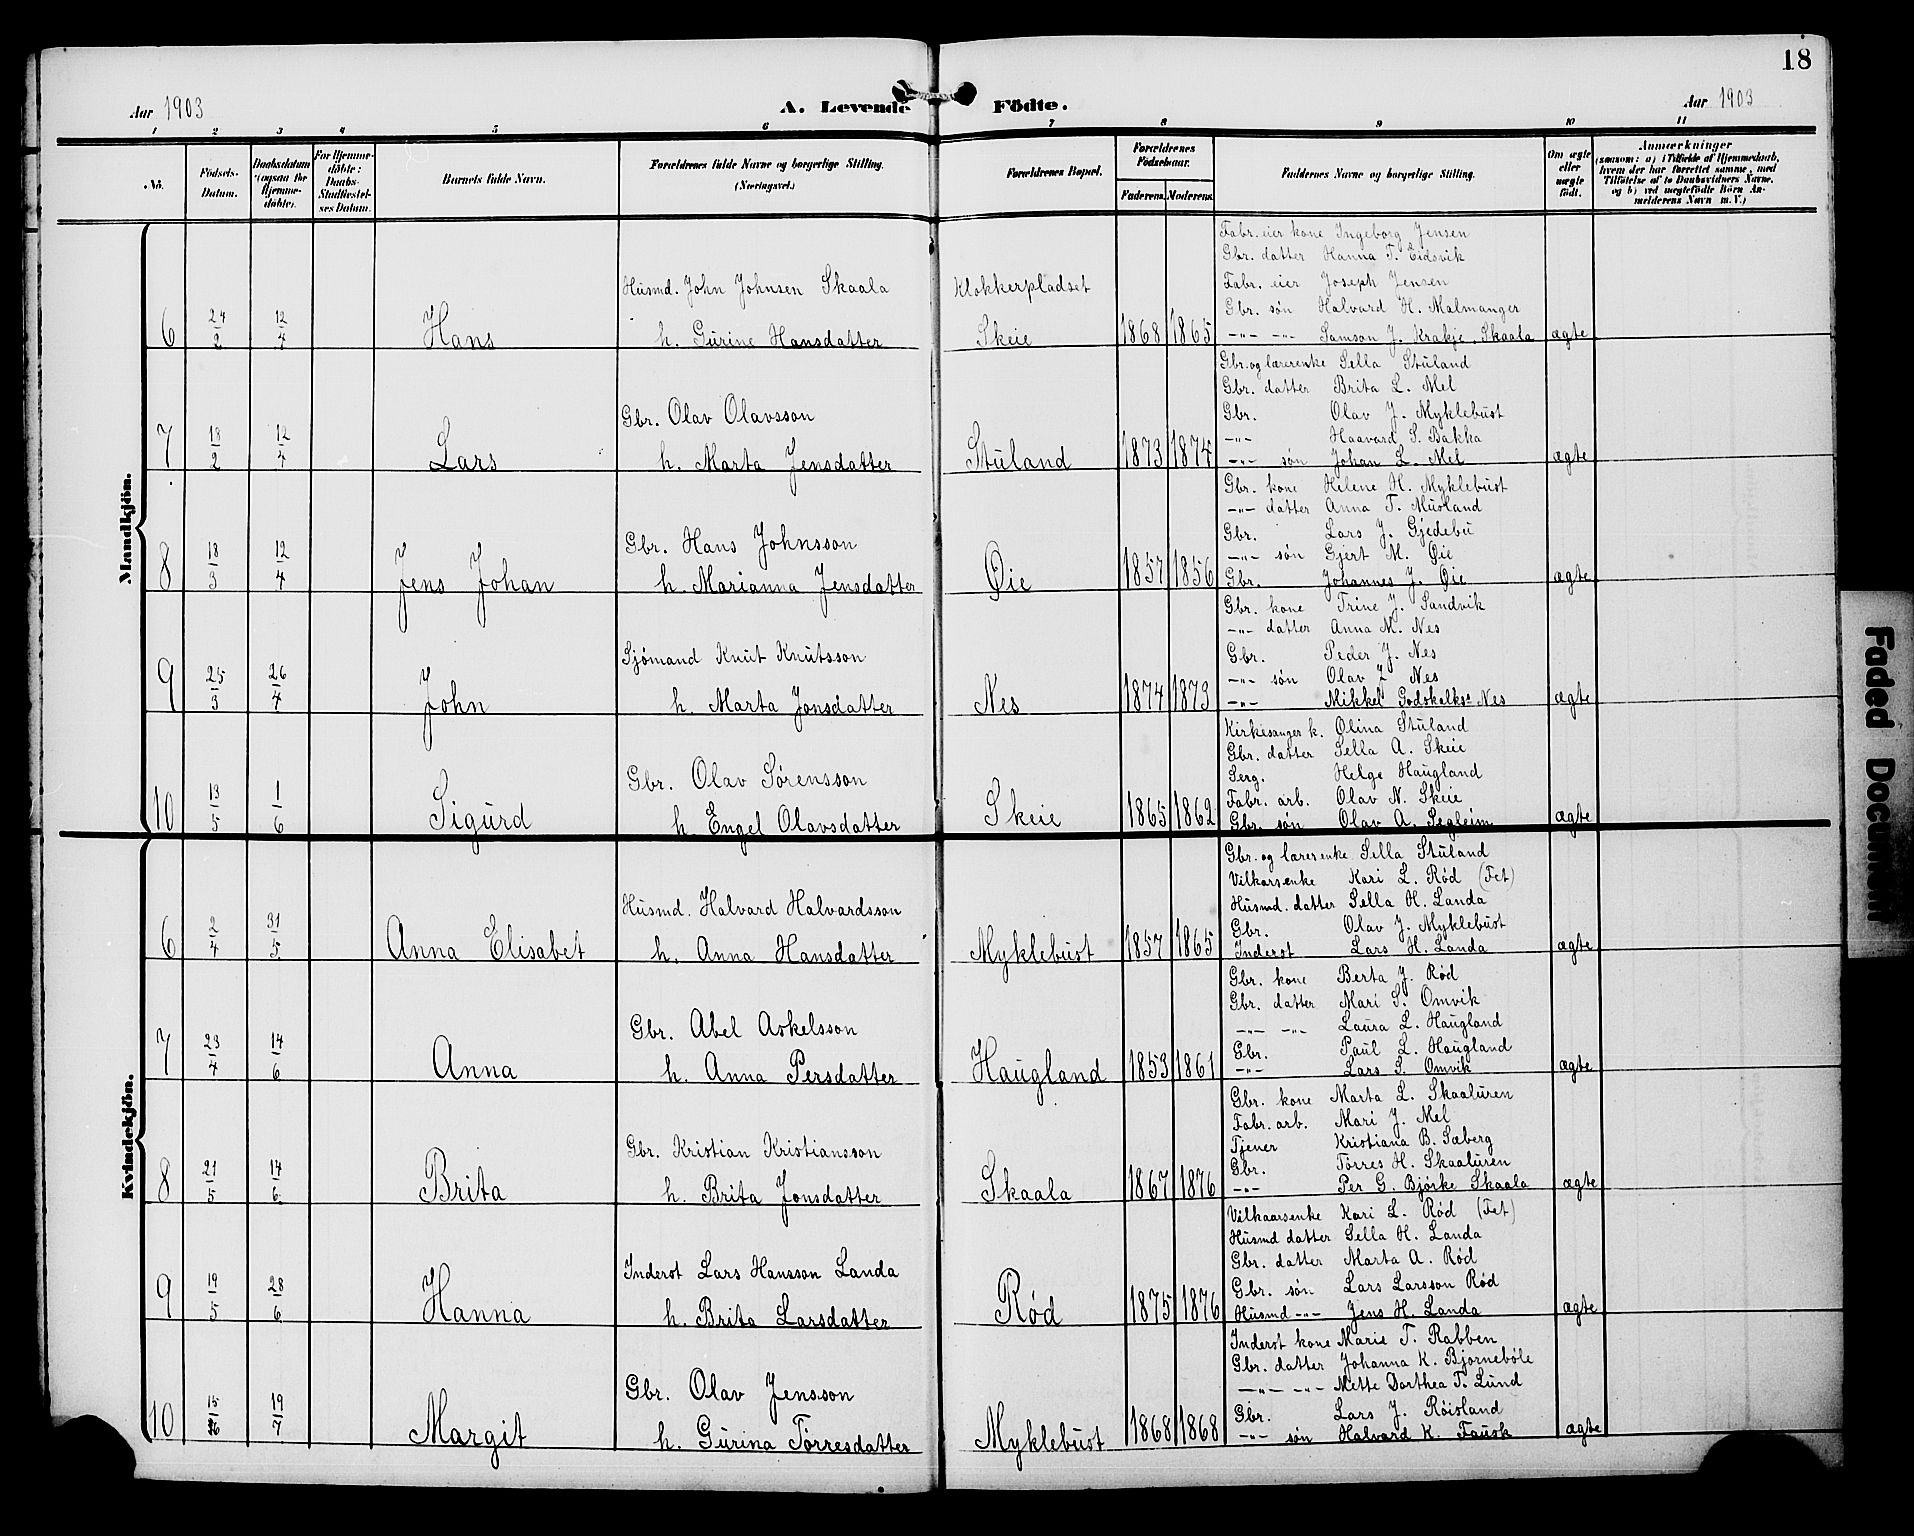 18
Aar 1903
A. Levende Födte.
Aar 1903
1 2 3 4 5 6 7 8 9 10 11
No.
Födsels-Datum.
Daabsdatum (ogsaa for Hjemme-döbte).
For Hjemme-döbte: Daabs-Stadfæstelses Datum.
Barnets fulde Navn.
Forældrenes fulde Navne og borgerlige Stilling. (Næringsvei.)
Forældrenes Bopæl.
Forældrenes Födselsaar.
Faderens. Moderens.
Faddernes Navne og borgerlige Stilling.
Om ægte eller uægte födt.
Anmærkninger
(saasom: a) i Tilfælde af Hjemmedaab, hvem der har forrettet samme, med Tilföielse af to Daabsvidners Navne, og b) ved uægtefödte Börn Anmelderens Navn m. V.)
Mandkjön.
6 24/2 12/4 Hans
Husmd. John Johnsen Skaala
h. Gurine Hansdatter
Klokkerpladset
Skeie
1868 1865
Fabr. eier kone Ingeborg Jensen
Gbr. datter Hanna T. Eidsvik
Fabr. eier Joseph Jensen
Gbr. søn Halvard H. Malmanger
-"- -"- Samson J. Krakje. Skaala
ægte
7 18/2 12/4 Lars
Gbr. Olav Olavsson
h. Marta Jensdatter
Stuland
1873 1874
Gbr. og lærerenke Sella Stuland
Gbr. datter Brita L. Mel
Gbr. Olav J. Myklebust
-"- Haavard S. Bakka
-"- søn Johan L. Mel
ægte
8 18/3 12/4 Jens Johan
Gbr. Hans Johnsson
h. Marianna Jensdatter
Øie
1857 1856
Gbr. kone Helene H. Myklebust
-"- datter Anna T. Musland
Gbr. Lars J. Gjedebu
-"- søn Gjert M. Øie
Gbr. Johannes J. Øie
ægte
9 25/3 26/4 John
Sjömand Knut Knutsson
h. Marta Jonsdatter
Nes
1874 1873
Gbr. kone Trine J. Sandvik
-"- datter Anna M. Nes
Gbr. Peder J. Nes
-"- søn Olav J. Nes
-"- Mikkel Godskalks: Nes
ægte
10 13/5 1/6 Sigurd
Gbr. Olav Sørensson
h. Engel Olavsdatter
Skeie
1865 1862
Kirkesanger k. Olina Stuland
Gbr. datter Sella A. Skeie
Serg. Helge Haugland
Fabr. arb. Olav N. Skeie
Gbr. søn Olav A. Segleim
ægte
Kvindekjön.
6 2/4 31/5 Anna Elisabet
Husmd. Halvard Halvardsson
h. Anna Hansdatter
Myklebust
1857 1865
Gbr. og lærerenke Sella Stuland
Vilkarsenke Kari L. Rød (Fet)
Husmd. datter Sella H. Landa
Gbr. Olav J. Myklebust
Inderst Lars H. Landa
ægte
7 23/4 14/6 Anna
Gbr. Abel Askelsson
h. Anna Persdatter
Haugland
1853 1861
Gbr. kone Berta J. Rød
Gbr. datter Mari S. Omvik
-"- -"- Laura L. Haugland
Gbr. Paul L. Haugland
-"- Lars S. Omvik
ægte
8 21/5 14/6 Brita
Gbr. Kristian Kristiansson
h. Brita Jonsdatter
Skaala
1867 1876
Gbr. kone Marta L. Skaaluren
Fabr. arb. Mari J. Mel
Tjener Kristiana B. Sæberg
Gbr. Torres H. Skaaluren
-"- Per G. Bjørke Skaala
ægte
9 19/5 28/6 Hanna
Inderst Lars Hansson Landa
h. Brita Larsdatter
Rød
1875 1876
Vilkaarsenke Kari L. Rød (Fet)
Husmd datter Sella H. Landa
Gbr. datter Marta A. Rød
Gbr. søn Lars Larsson Rød
Husmd -"- Jens H. Landa
ægte
10 15/6 19/7 Margit
Gbr. Olav Jensson
h. Gurina Torresdatter
Myklebust
1868 1868
Inderst kone Marie T. Rabben
Gbr. datter Johanna K. Bjørnebøle
-"- -"- Mette Dorthea T. Lund
Gbr. Lars J. Røisland
-"- søn Halvard K. Fausk
ægte
Faded Document